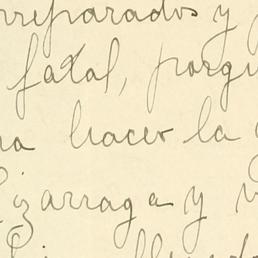 rreparados y
fatal, porqu
na hacer la
Lizarraga y